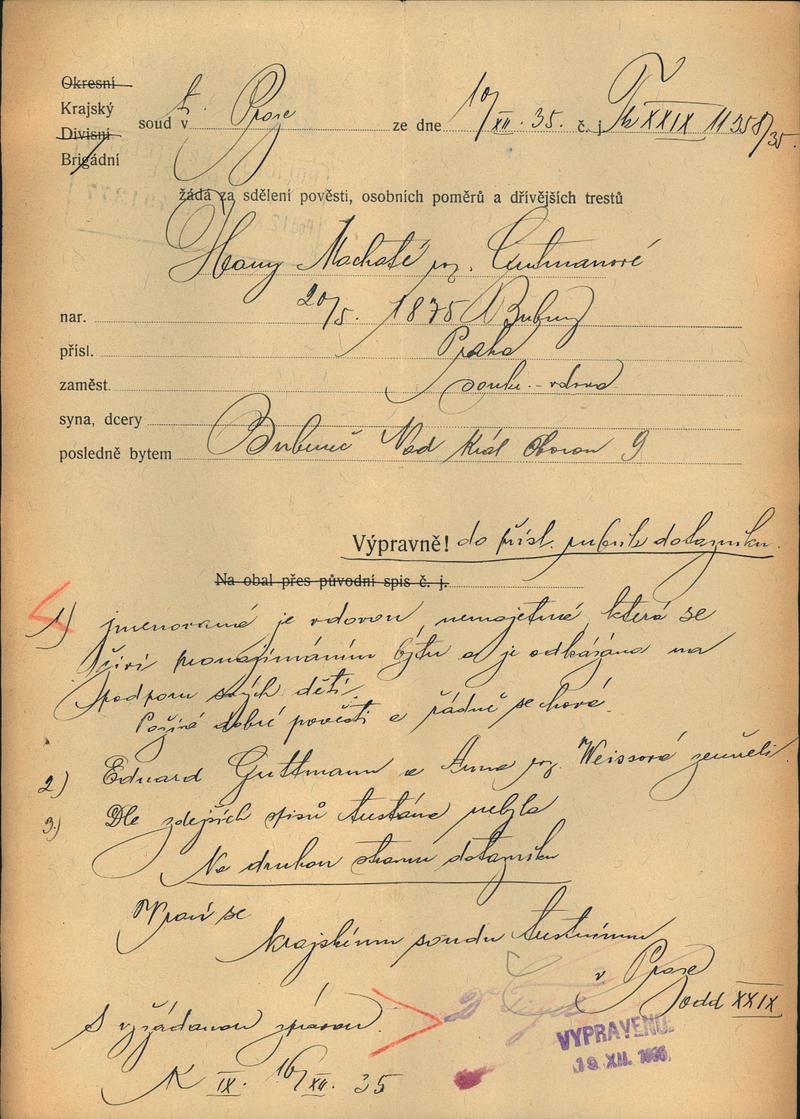 Okresní
Krajský
Divisní
Brigádní
soud v t. Praze ze dne 10/XII. 35. č. j. Tk XXIX 11358/35.
žádá za sdělení pověsti, osobních poměrů a dřívějších trestů
Hany Machaté roz. Gutmanové
nar. 20/5. 1875 Bubny
přísl. Praha
zaměst. soukr. - vdova
syna, dcery
posledně bytem Bubeneč Nad Král Oborou 9
Výpravně! do přísl. rubrik dotazníku.
Na obal přes původní spis č. j.
1) jmenovaná je vdovou, nemajetná, která se
živí pronajímáním bytu a je odkázána na
podporu svých dětí.
Požívá dobré pověsti a řádně se chová.
2) Eduard Guttmann a Anna roz. Weissová zemřeli.
3.) Dle zdejších spisů trestána nebyla
Na druhou stranu dotazníku
Vrací se
krajskému soudu trestnímu
v Praze
odd XXIX
s vyžádanou zprávou.
VYPRAVENO:
19. XII. 1935.
K IX. 16/XII. 35